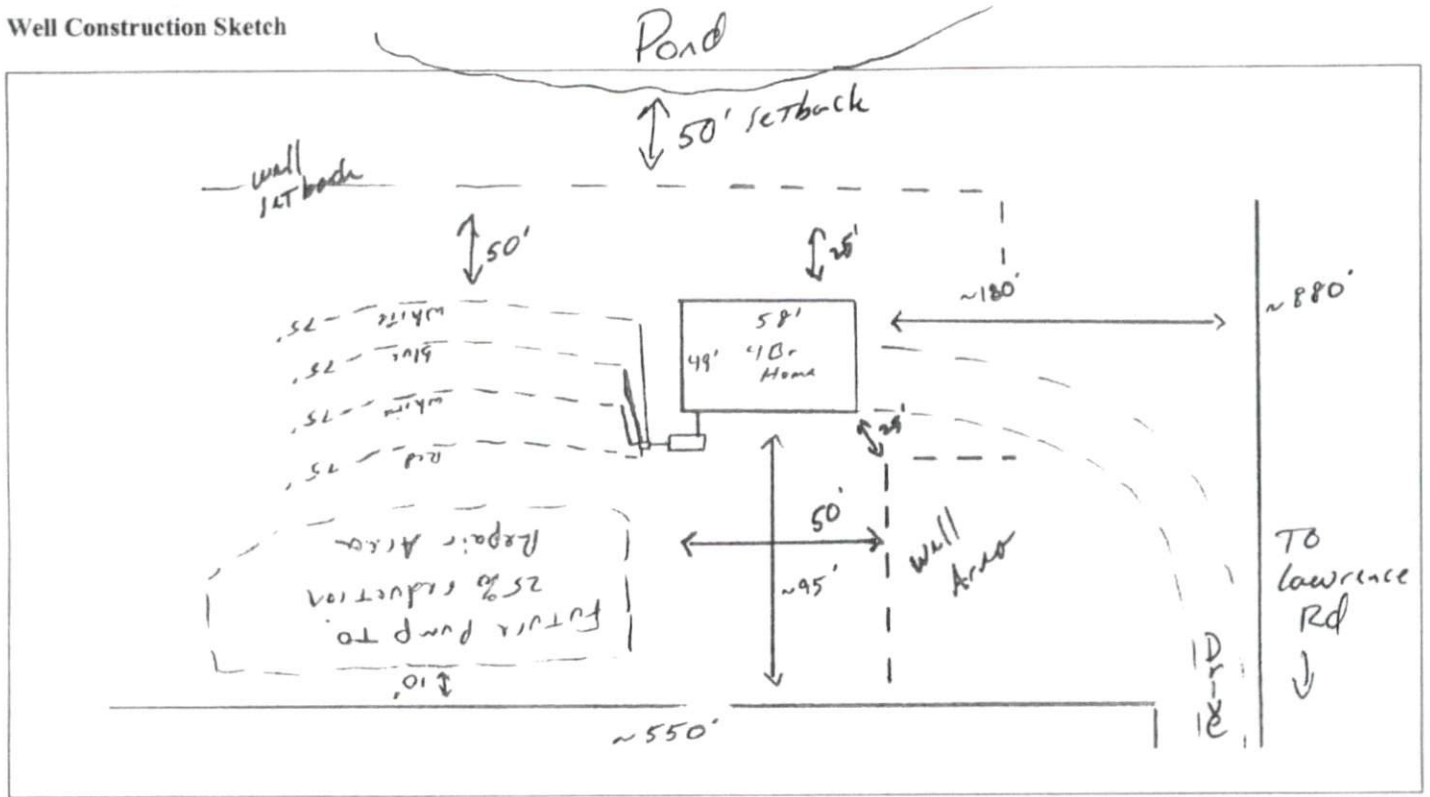 Well Construction Sketch
Pond
50' setback
well
setback
50'
25'
~180'
~880'
white - 75'
blue - 75'
white - 75'
Red - 75'
58'
49'
4Br
Home
25'
50'
~95'
Well
Area
Future Pump To
25% reduction
Repair Area
10'
~550'
Drive
To
Lawrence
Rd